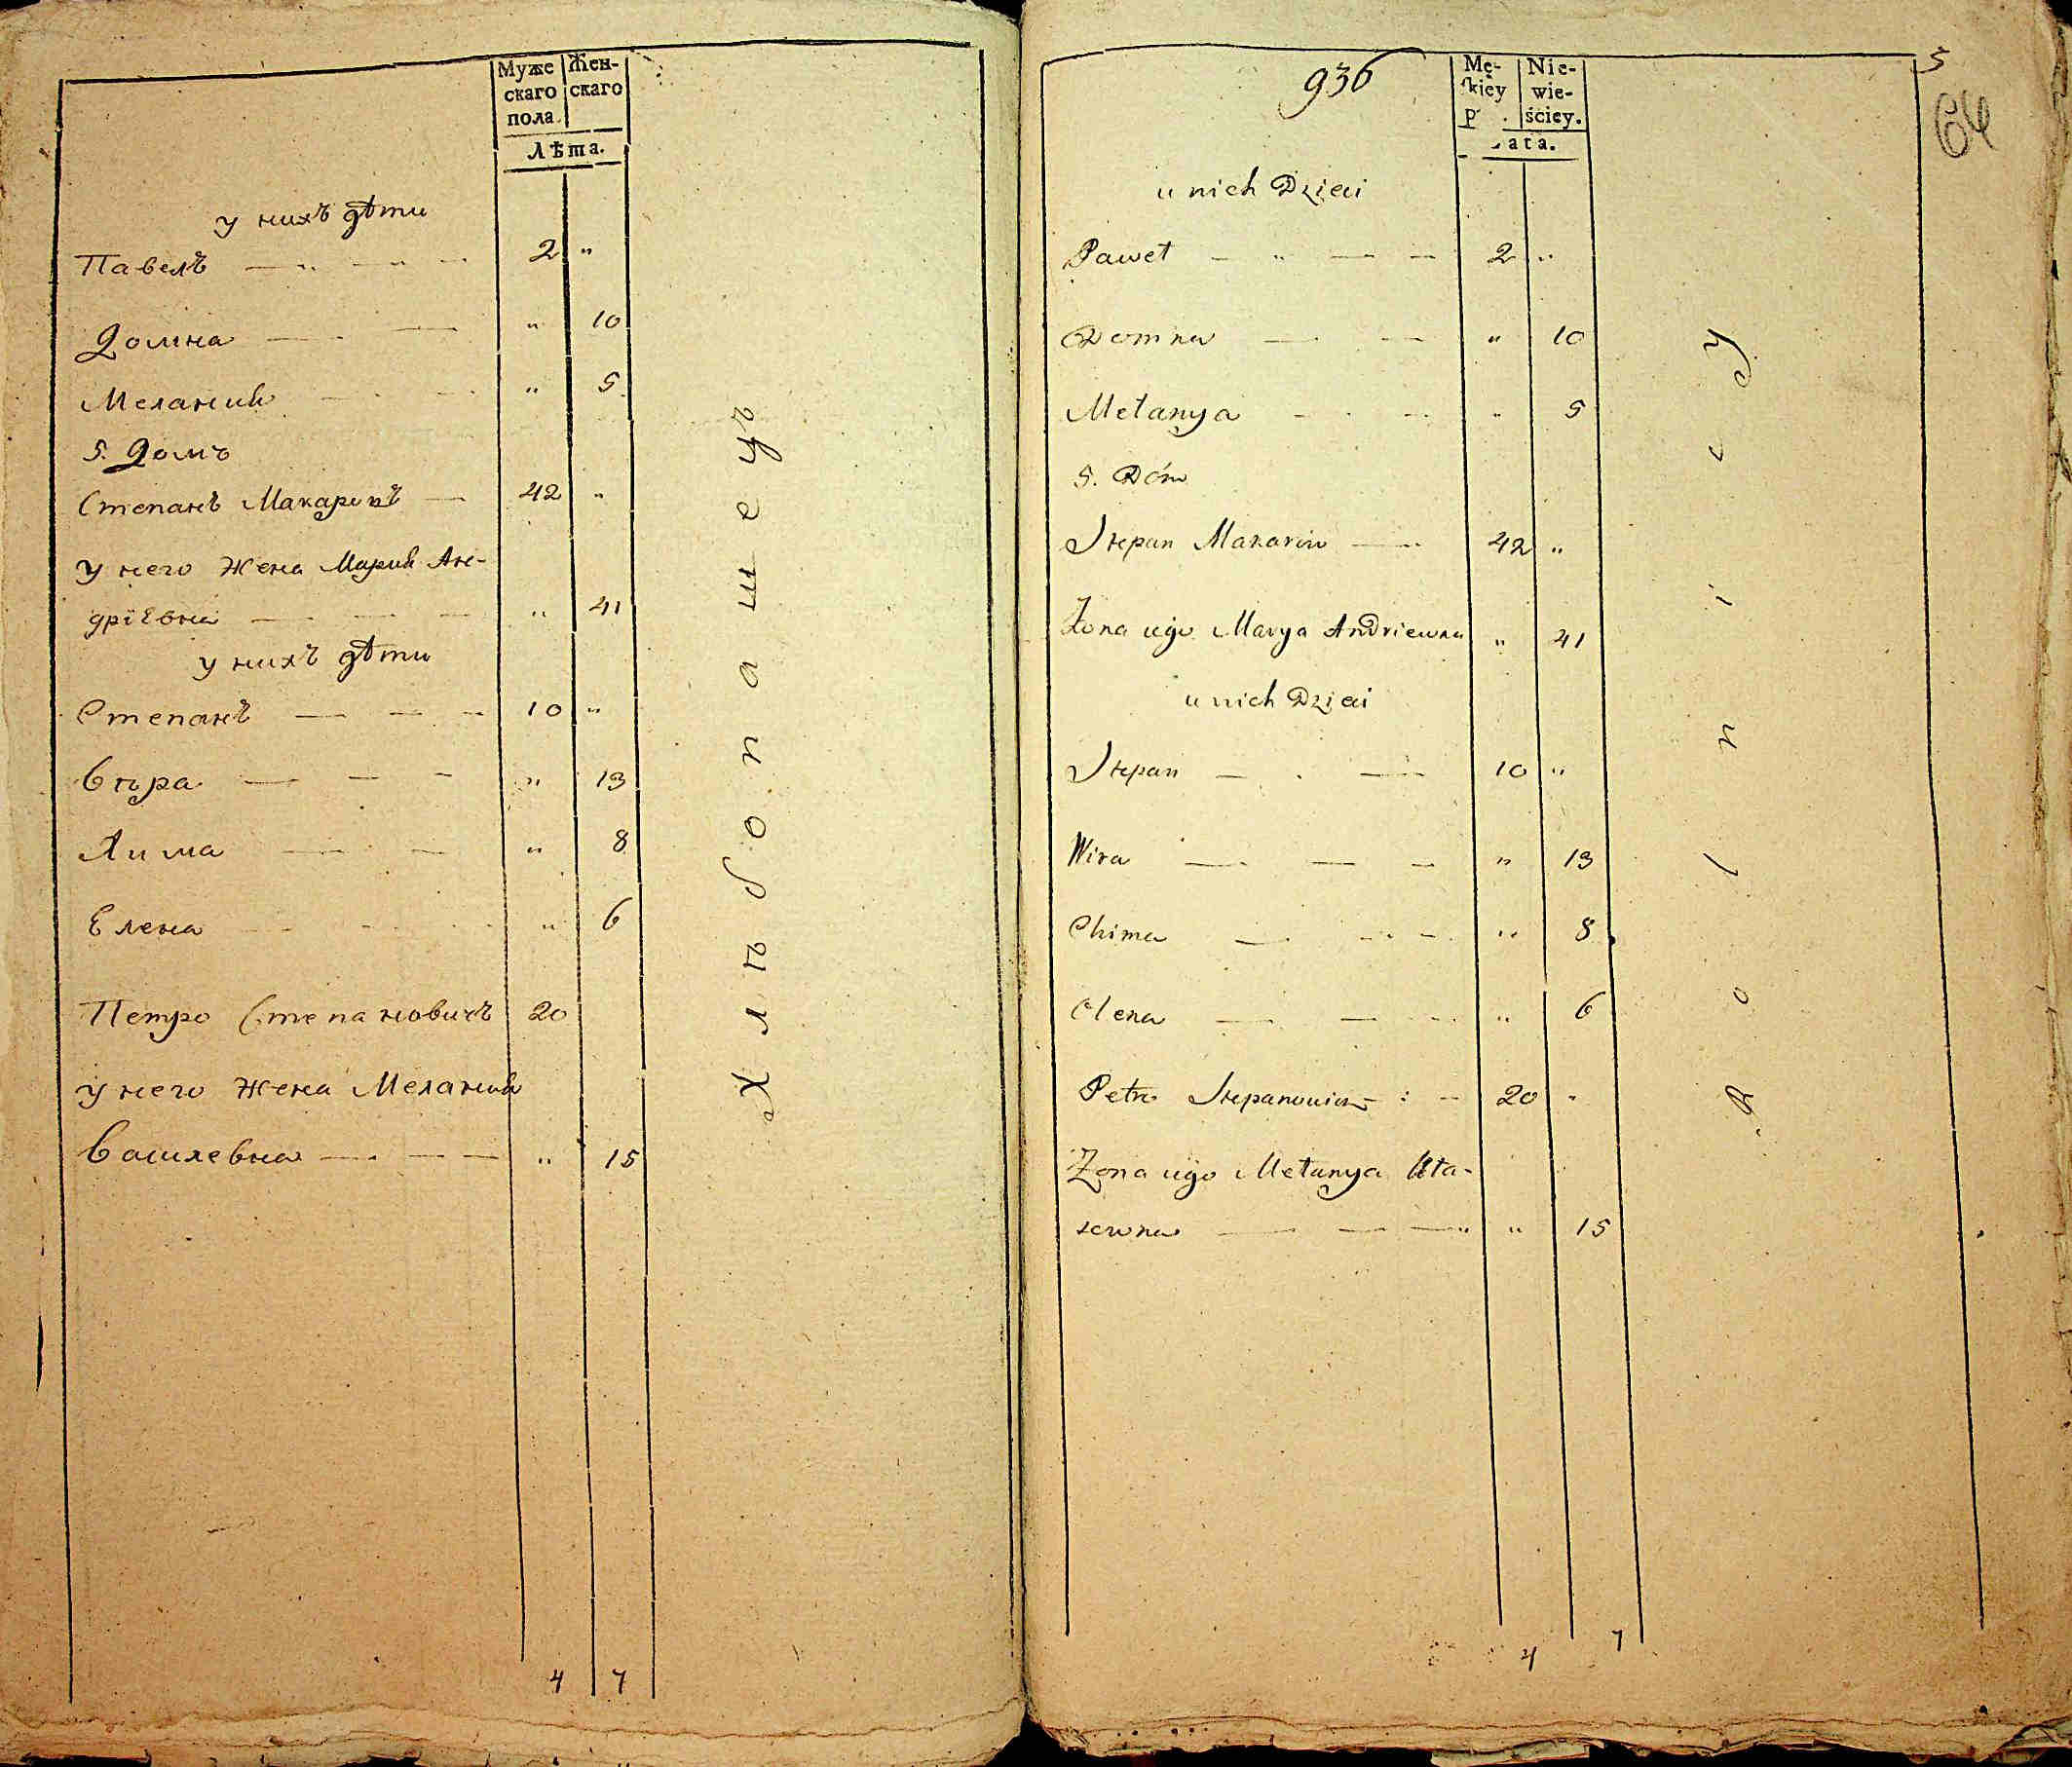 Муже Жен-
скаго скаго
пола.
Лѣта.
у нихъ дѣти
Павелъ 2 "
Домна " 10
Мелания " 5
5. Домъ
Степанъ Макаривъ 42 "
у него жена Мария Ан-
дріевна " 41
у нихъ дѣти
Степанъ 10 "
Вѣра " 13
Хима " 8
Елена " 6
Петро Степановичъ 20
у него жена Мелания
Василевна " 15
Хлѣбопашецъ
4 7
936
5
64
Mę- Nie-
skiey wie-
p . ściey.
ata.
u nich Dzieci
Paweł 2 "
Domna " 10
Melanya " 5
5. Dóm
Stepan Makarów 42 "
Żona iego Marya Andriewna " 41
u nich Dzieci
Stepan 10 "
Wira " 13
Chima " 8
Olena " 6
Petro Stepanowicz 20 "
Żona iego Melanya
" 15
Rolnicy
4 7